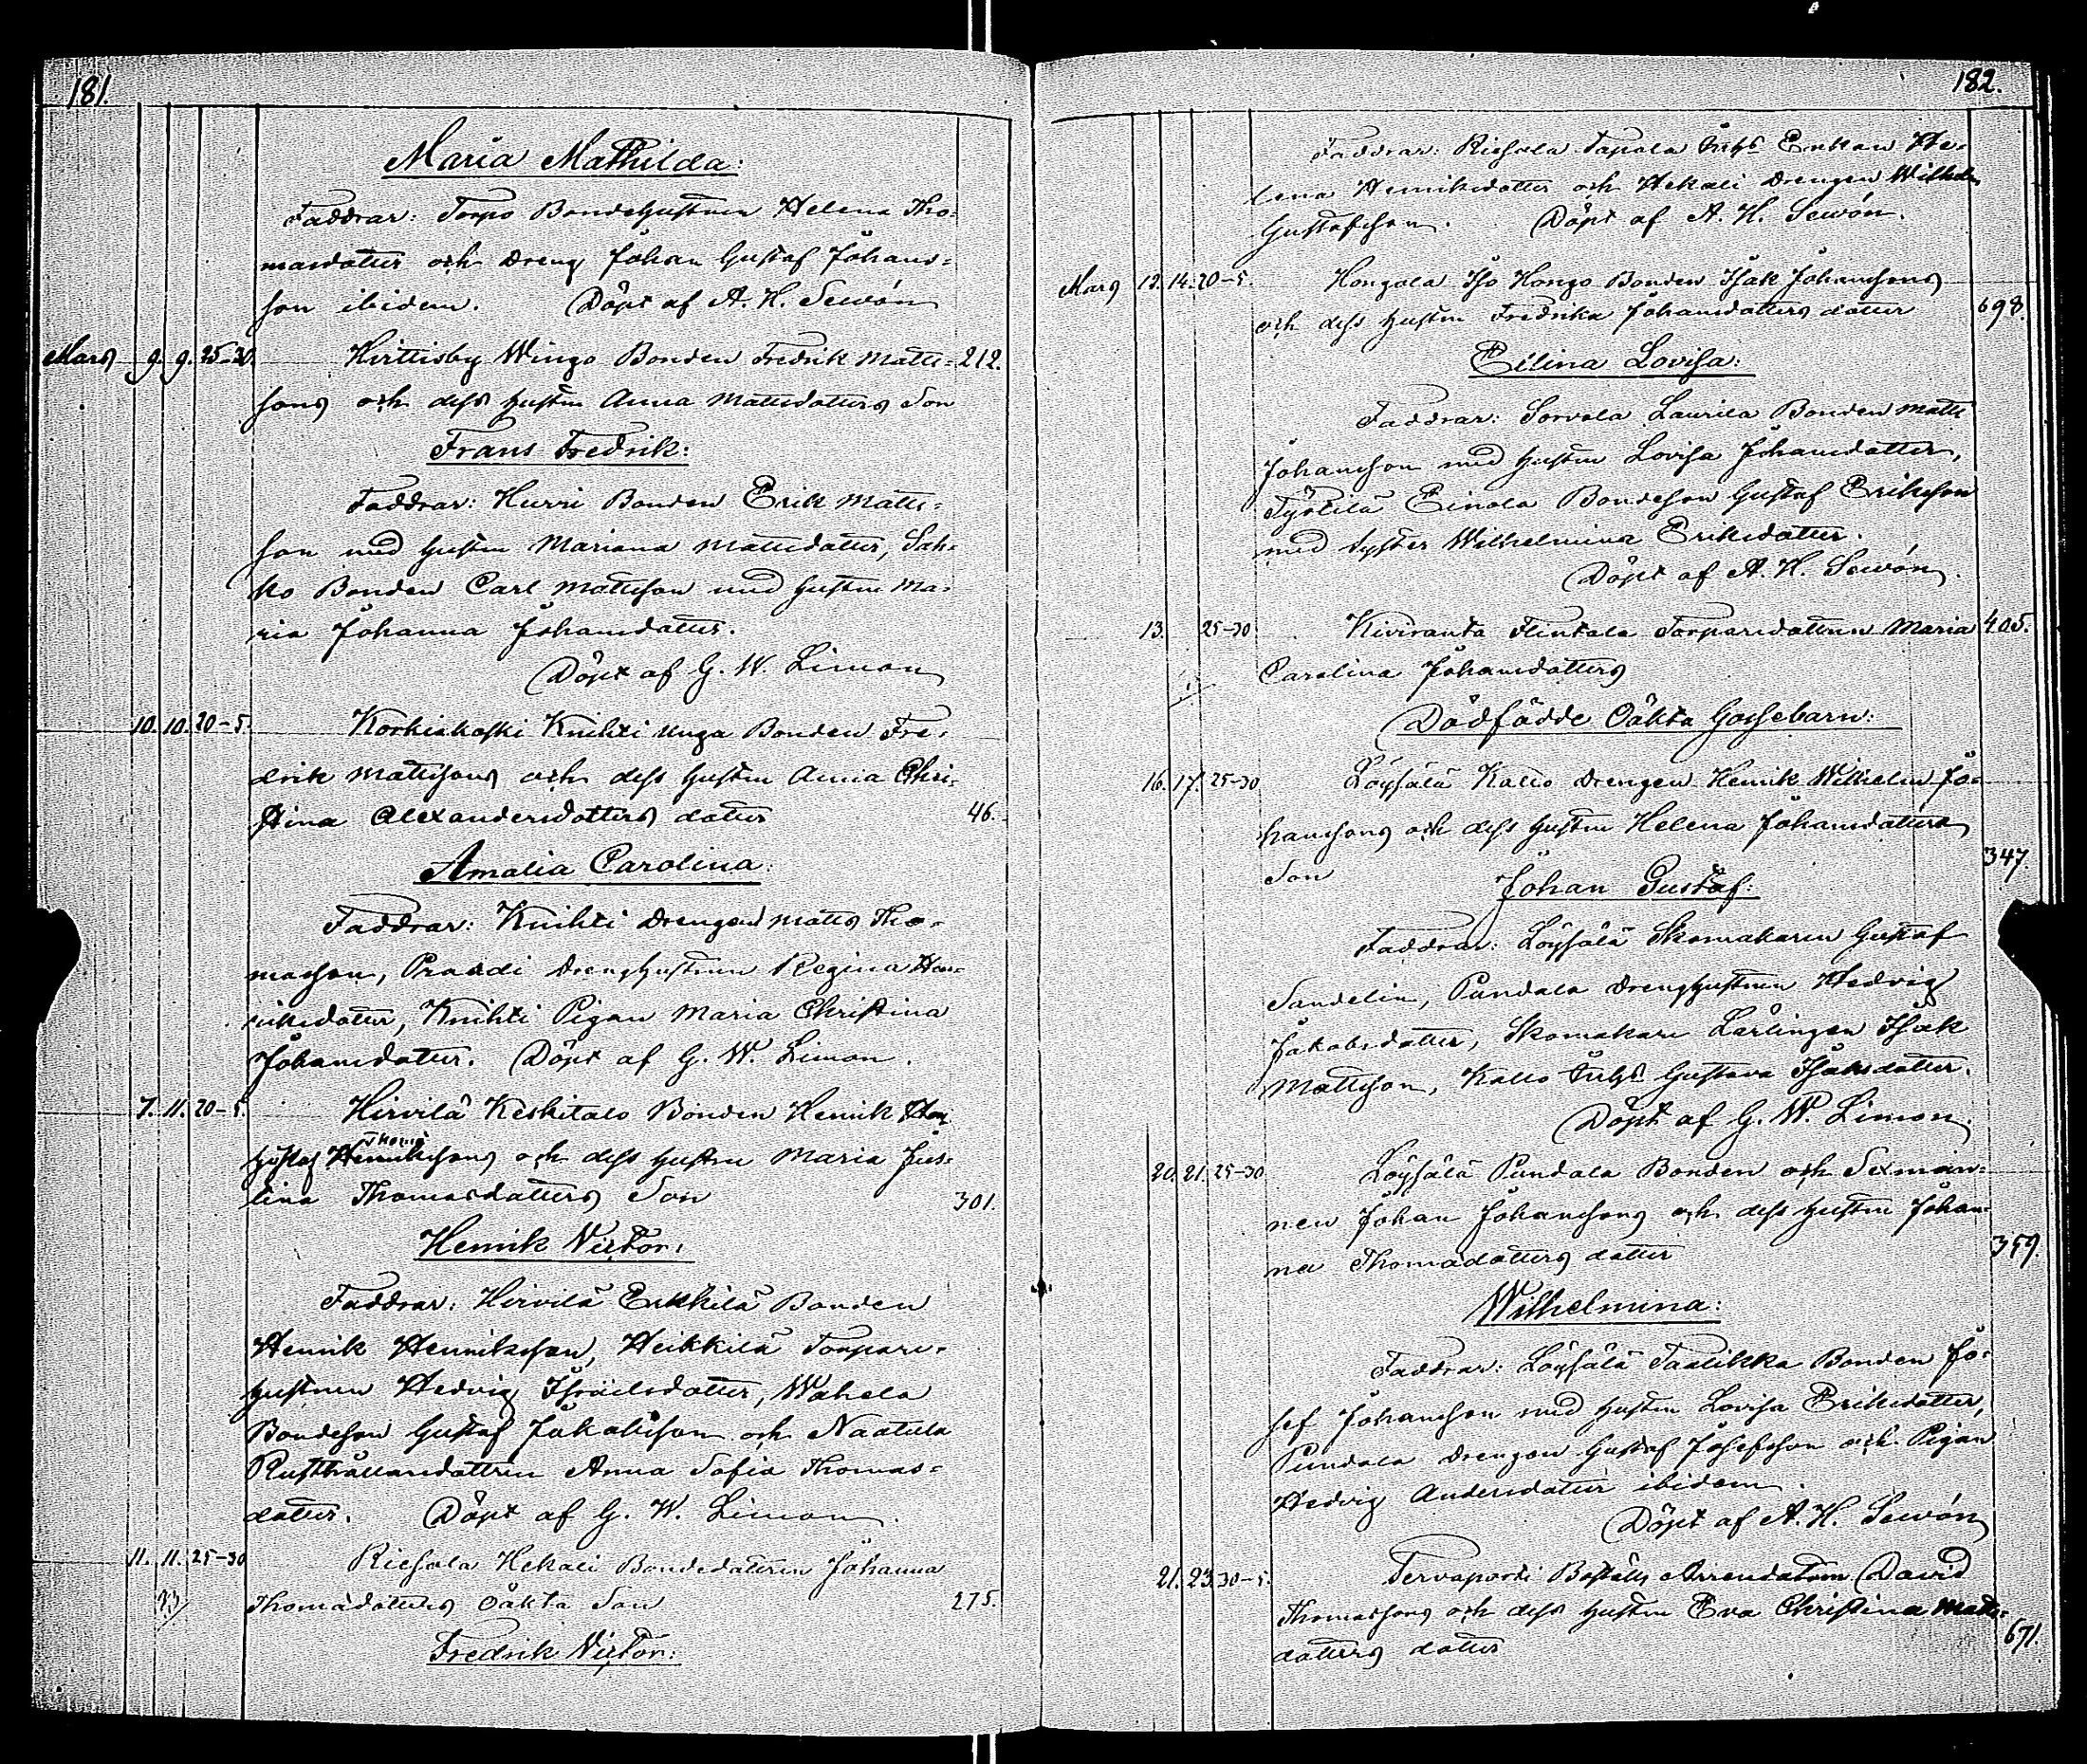 181.
Maria Mathilda:
Faddrar: Torpo Bondehustrun Helena Tho-
masdotter och Dreng Johan Gustaf Johans-
son ibidem. Döpt af A. H. Sewón
Mars 9. 9. 25-30. Hirttisby Wingo Bonden Fredrik Matts- 212.
sons och dess hustru Anna Mattsdotters Son
Frans Fredrik:
Faddrar: Hurri Bonden Erik Matts-
son med hustru Mariana Mattsdotter, Sah-
ko Bonden Carl Mattsson med hustru Ma-
ria Johanna Johansdotter.
Döpt af G. W. Limon
10. 10. 20-5. Korkiakoski Knihti unga Bonden Fre-
drik Mattssons och dess hustru Anna Chri-
stina Alexandersdotters dotter 46.
Amalia Carolina:
Faddrar: Knihti Drengen Matts Tho-
masson, Praadi Drenghustrun Regina Hen-
riksdotter, Knihti Pigan Maria Christina
Johansdotter. Döpt af G. W. Limon.
7. 11. 20-5. Hirvilä Keskitalo Bonden Henrik
Gustaf Thoms och dess hustru Maria Jus-
tina Thomasdotters Son 301.
Henrik Victor:
Faddrar: Hirvilä Erkkilä Bonden
Henrik Henriksson, Heikkilä Torpare-
hustrun Hedvig Israelsdotter, Wahela
Bondeson Gustaf Jakobsson och Naatula
Rusthållaredottren Anna Sofia Thomas-
dotter. Döpt af G. W. Limon.
11. 11. 25-30 Riesola Hekali Bondedottren Johanna
Thomasdotters Oäkta Son 275.
Fredrik Victor:
182.
Faddrar: Riesola Tapola Inhs Enkan He-
lena Henriksdotter och Hekali Drengen Wilhelm
Gustafsson. Döpt af A. H. Sewón.
Mars 12. 14. 20-5. Hongola Iso Hongo Bonden Isak Johanssons
och dess hustru Fredrika Johansdotters dotter 698.
Eilina Lovisa:
Faddrar: Sorvola Laurila Bonden Matts
Johansson med hustru Lovisa Johansdotter,
Työtilä Einola Bondeson Gustaf Eriksson
med syster Wilhelmina Eriksdotter.
Döpt af A. H. Sewón.
13. 25-30 Kiviranta Flinkala Torparedottren Maria 405.
Carolina Johansdotters
Dödfödde Oäkta Gossebarn:
16. 17. 25-30 Löysälä Kallo Drengen Henrik Wilhelm Jo-
hanssons och dess hustru Helena Johansdotters
Son 347.
Johan Gustaf:
Faddrar: Löysälä Skomakaren Gustaf
Sandelin, Pundala Drenghustrun Hedvig
Jakobsdotter, Skomakare Lärlingen Isak
Mattsson, Kallo Inhs Gustava Isaksdotter.
Döpt af G. W. Limon.
20. 21. 25-30 Löysälä Pundala Bonden och Sexmän-
nen Johan Johanssons och dess hustru Johan-
na Thomasdotters dotter 359.
Wilhelmina:
Faddrar: Löysälä Taalikka Bonden Jo-
sef Johansson med hustru Lovisa Eriksdotter,
Pundala Drengen Gustaf Josefsson och Pigan
Hedvig Andersdotter ibidem.
Döpt af A. H. Sewón
21. 23. 30-5. Tervaporti Boställs Arrendatorn David
Thomassons och dess hustru Eva Christina Matts-
dotters dotter 671.